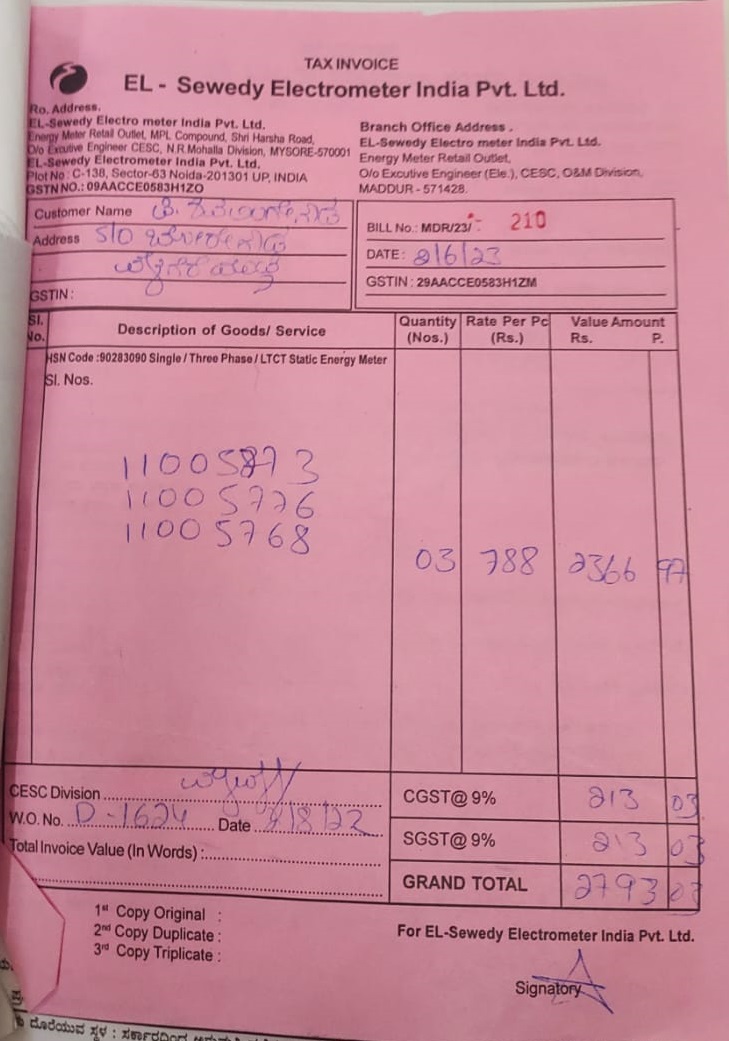 TAX INVOICE
EL - Sewedy Electrometer India Pvt. Ltd.
Ro. Address.
EL-Sewedy Electro meter India Pvt. Ltd.
Energy Meter Retail Outlet, MPL Compound, Shri Harsha Road,
O/o Exutive Engineer CESC, N.R.Mohalla Division, MYSORE-570001
EL-Sewedy Electrometer India Pvt. Ltd.
Plot No : C-138, Sector-63 Noida-201301 UP, INDIA
GSTN NO.: 09AACCE0583H1ZO
Branch Office Address .
EL-Sewedy Electro meter India Pvt. Ltd.
Energy Meter Retail Outlet,
O/o Excutive Engineer (Ele.), CESC, O&M Division,
MADDUR - 571428.
Customer Name
Address S/O
GSTIN :
BILL No.: MDR/23/- 210
DATE: 8/6/23
GSTIN : 29AACCE0583H1ZM
Sl. No. Description of Goods/ Service Quantity (Nos.) Rate Per Pc (Rs.) Value Amount Rs. P.
HSN Code :90283090 Single / Three Phase / LTCT Static Energy Meter
Sl. Nos.
11005776
11005768
03 788 2366 97
CESC Division
W.O. No. D-1624 Date
Total Invoice Value (In Words) :
CGST@ 9% 213 03
SGST@ 9% 213 03
GRAND TOTAL 2793 03
1st Copy Original :
2nd Copy Duplicate :
3rd Copy Triplicate :
For EL-Sewedy Electrometer India Pvt. Ltd.
Signatory
ದೊರೆಯುವ ಸ್ಥಳ : ಸರ್ಕಾರದಿಂದ